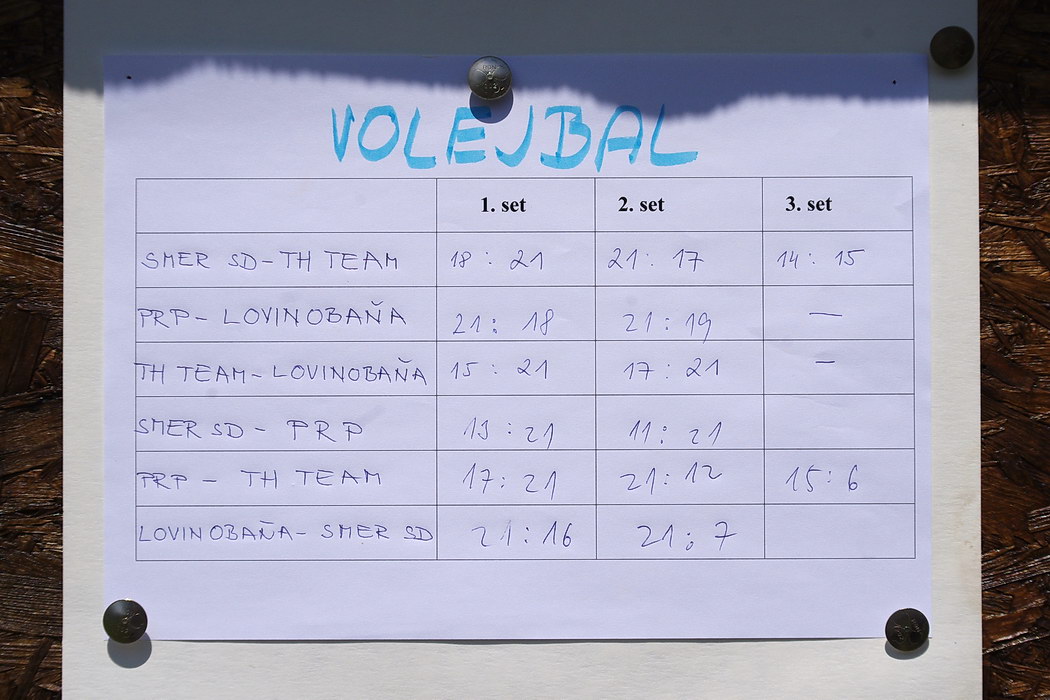 VOLEJBAL
1. set 2. set 3. set
SMER SD - TH TEAM 18 : 21 21 : 17 14 : 15
PRP - LOVINOBAŇA 21 : 18 21 : 19 —
TH TEAM - LOVINOBAŇA 15 : 21 17 : 21 —
SMER SD - PRP 19 : 21 11 : 21
PRP - TH TEAM 17 : 21 21 : 12 15 : 6
LOVINOBAŇA - SMER SD 21 : 16 21 : 7